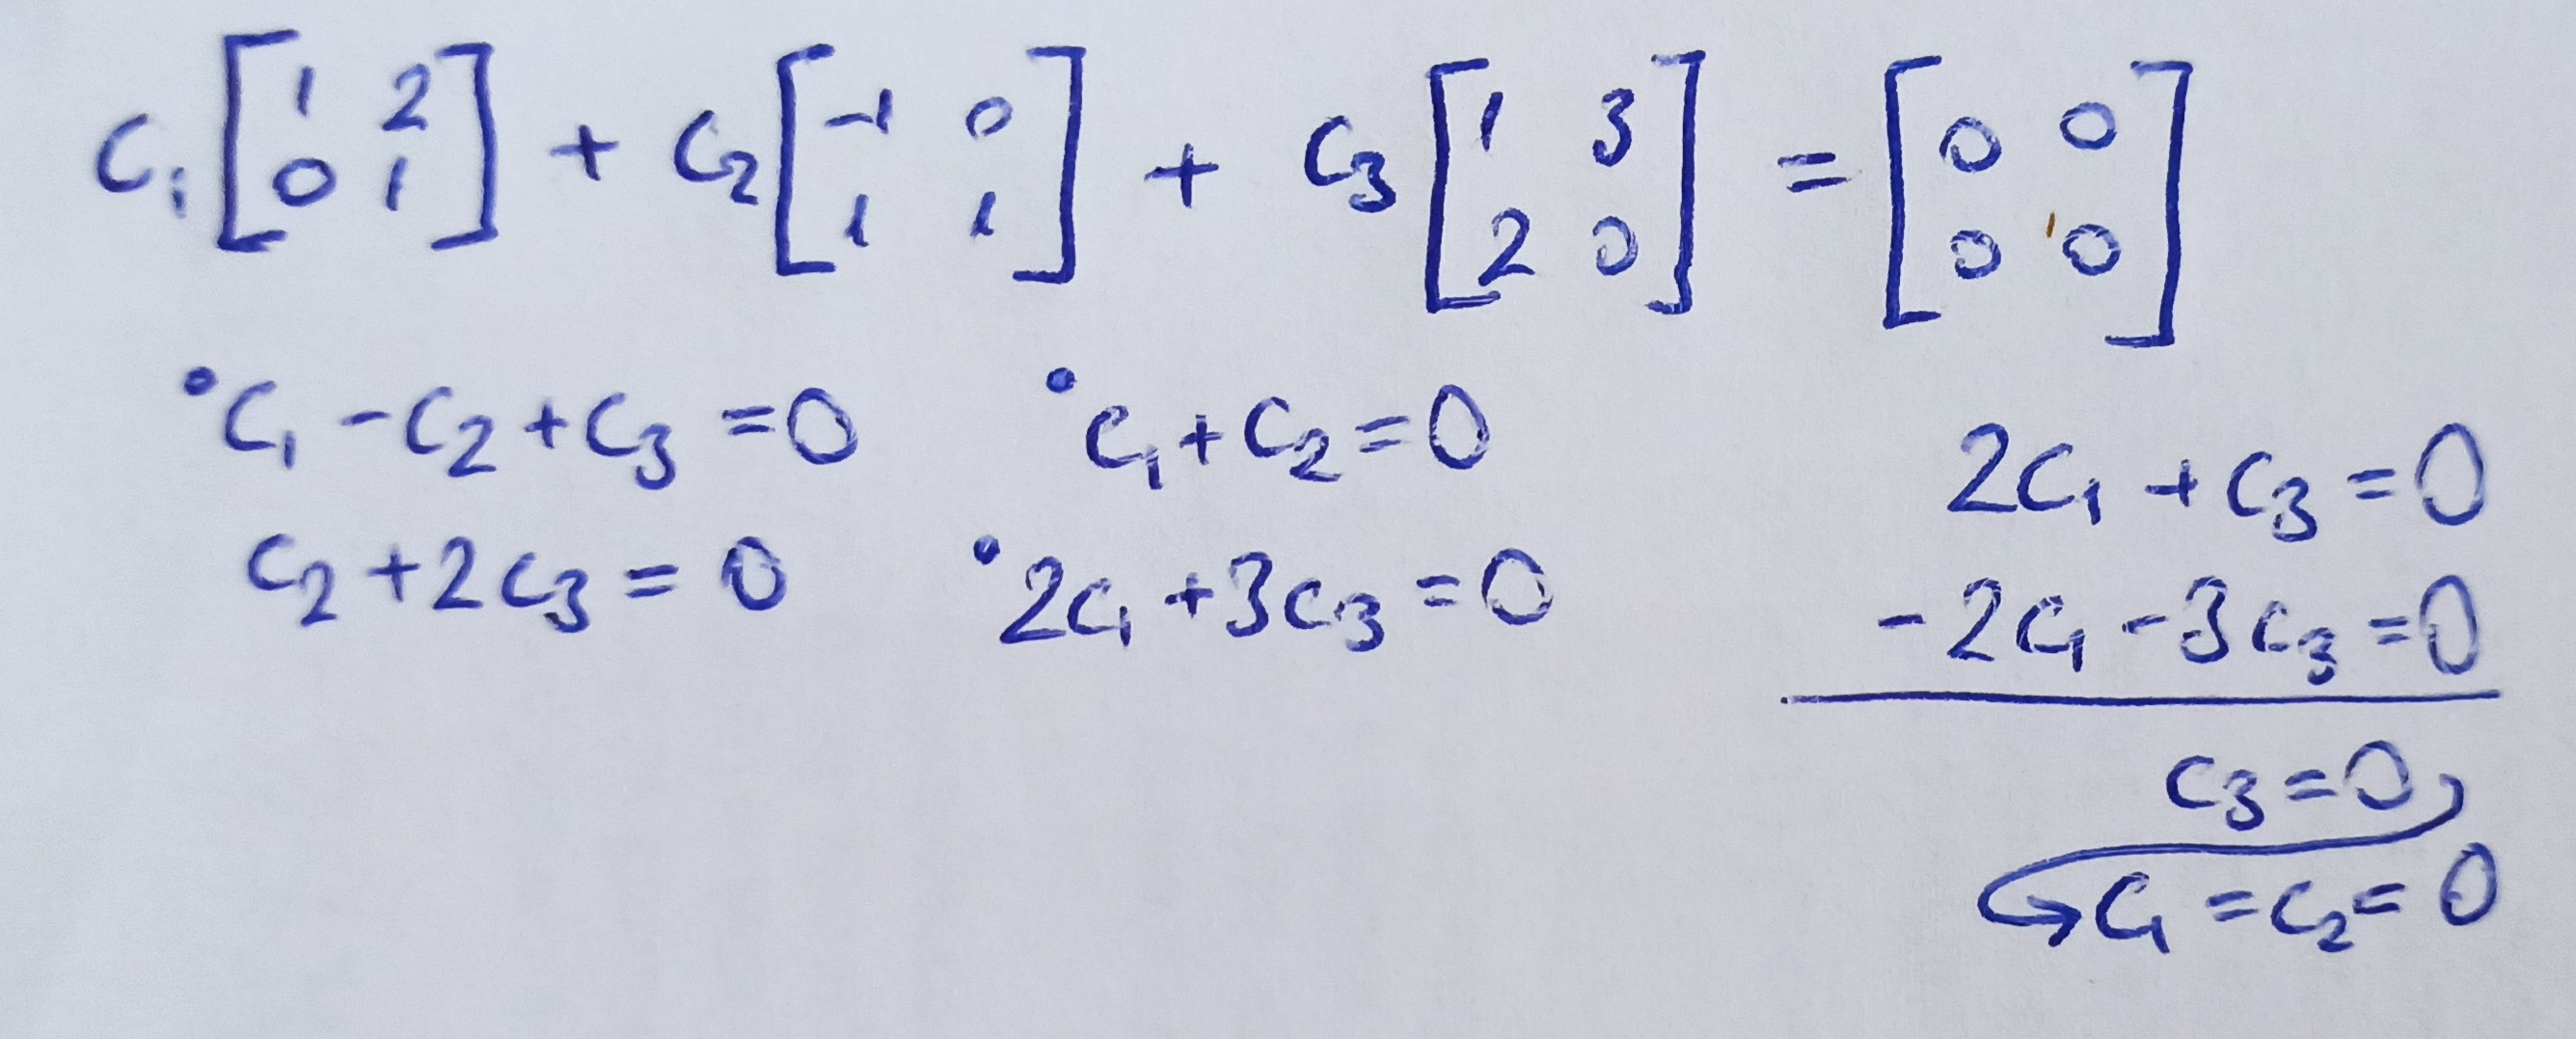 c₁ [1 2; 0 1] + c₂ [-1 0; 1 1] + c₃ [1 3; 2 0] = [0 0; 0 0]
• c₁ - c₂ + c₃ = 0
c₂ + 2c₃ = 0
• c₁ + c₂ = 0
• 2c₁ + 3c₃ = 0
2c₁ + c₃ = 0
-2c₁ - 3c₃ = 0
c₃ = 0
↪ c₁ = c₂ = 0